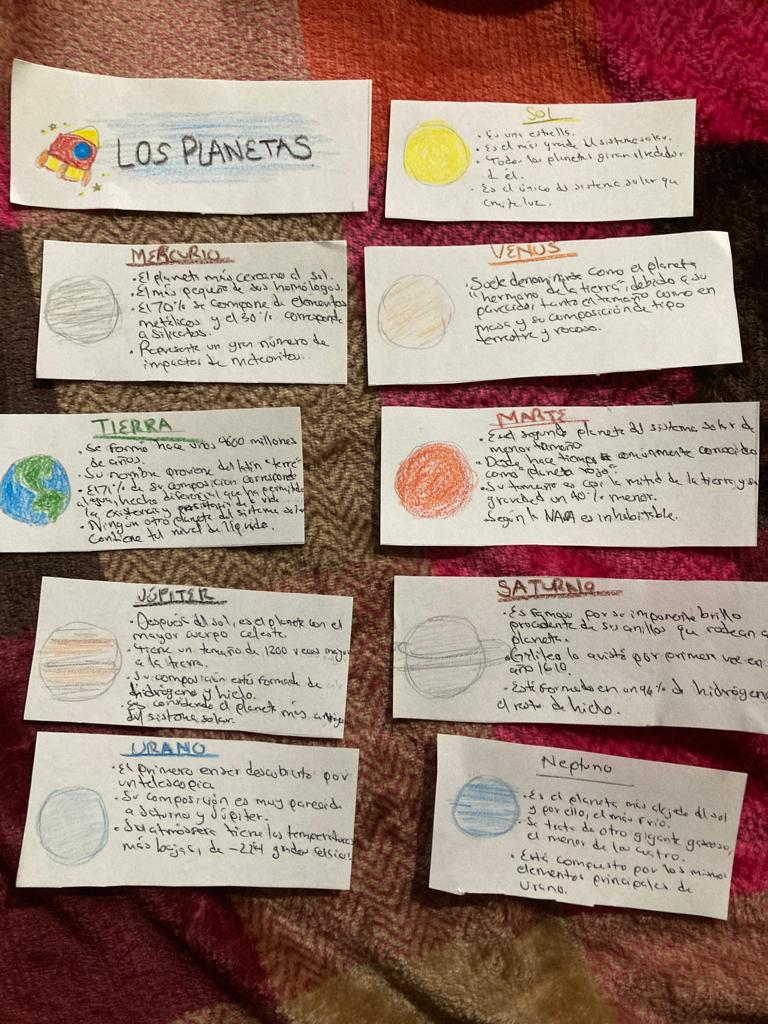 LOS PLANETAS
SOL
• Es una estrella.
• Es el más grande del sistema solar.
• Todos los planetas giran alrededor
de él.
• Es el único del sistema solar que
emite luz.
MERCURIO
• El planeta más cercano al sol.
• El más pequeño de sus homólogos.
• El 70% se compone de elementos
metálicos y el 30% corresponde
a silicatos.
• Representa un gran número de
impactos de meteoritos.
VENUS
Suele denominarse como el planeta
"hermano de la tierra", debido a su
parecido, tanto en tamaño como en
masa y su composición de tipo
terrestre y rocoso.
TIERRA
• Se formó hace unos 4600 millones
de años.
• Su nombre proviene del latín "terra"
• El 71% de su composición corresponde
al agua, hecho diferencial que ha permitido
la existencia y de vida
• Ningún otro planeta del sistema solar
contiene tal nivel de líquido.
MARTE
• Es el segundo planeta del sistema solar de
menor tamaño
• Desde hace tiempo es comúnmente conocido
como "planeta rojo".
• Su tamaño es casi la mitad de la tierra y su
gravedad un 40% menor.
• Según la NASA es inhabitable.
JÚPITER
• Después del sol, es el planeta con el
mayor cuerpo celeste.
• Tiene un tamaño de 1200 veces mayor
a la tierra.
• Su composición está formada de
hidrógeno y hielo.
• Es considerado el planeta más antiguo
del sistema solar.
SATURNO
• Es famoso por su imponente brillo
procedente de sus anillos que rodean al
planeta.
• Galileo lo avistó por primera vez en
año 1610.
• Está formado en un 96% de hidrógeno
el resto de hielo.
URANO
• El primero en ser descubierto por
un telescopio
• Su composición es muy parecida
a Saturno y Júpiter.
• Su atmósfera tiene las temperaturas
más bajas, de -224 grados celsius
Neptuno
• Es el planeta más alejado del sol
y por ello, el más frío.
• Se trata de otro gigante gaseoso,
el menor de los cuatro.
• Está compuesto por los mismos
elementos principales de
Urano.